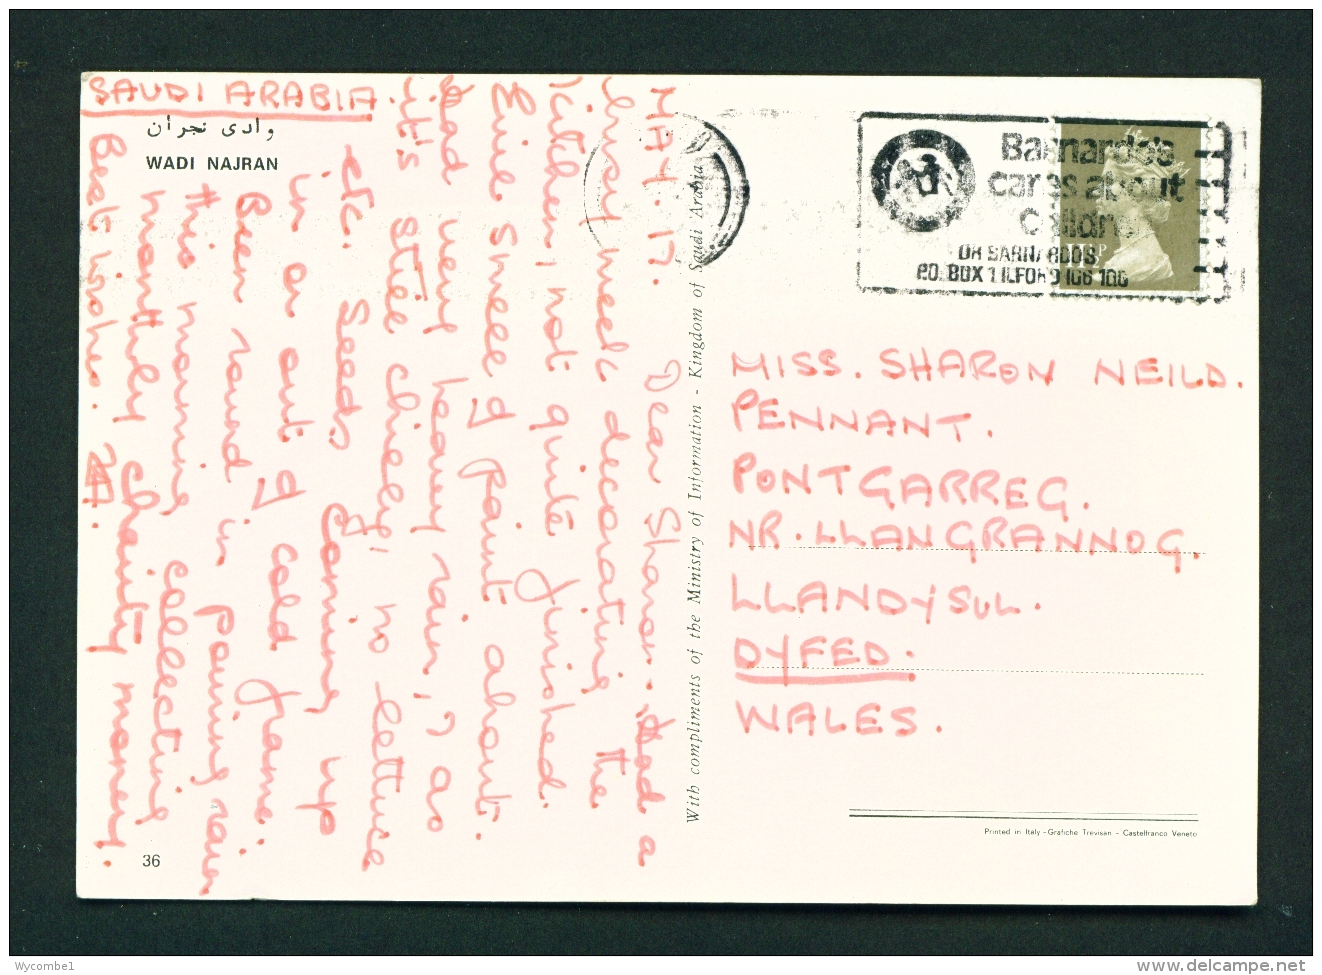 SAUDI ARABIA.
وادى نجران
WADI NAJRAN
MAY. 17.
Dear Sharon. Had a
busy week decorating the
kitchen, not quite finished.
Fine smell of paint about.
Had very heavy rain, as
it's still chilly, no lettuce
etc. Seeds coming up
in or out of cold frame.
Been round in pouring rain
this morning collecting
monthly charity money.
Best wishes.
With compliments of the Ministry of Information - Kingdom of Saudi Arabia
Barnardo's
cares about
Children
DR BARNARDOS
P.O. BOX 1 ILFORD IG6 1QG
MISS. SHARON NEILD.
PENNANT.
PONTGARREG.
NR. LLANGRANNOG.
LLANDYSUL.
DYFED.
WALES.
Printed in Italy - Grafiche Trevisan - Castelfranco Veneto
36
Wycombe1
delcampe.net